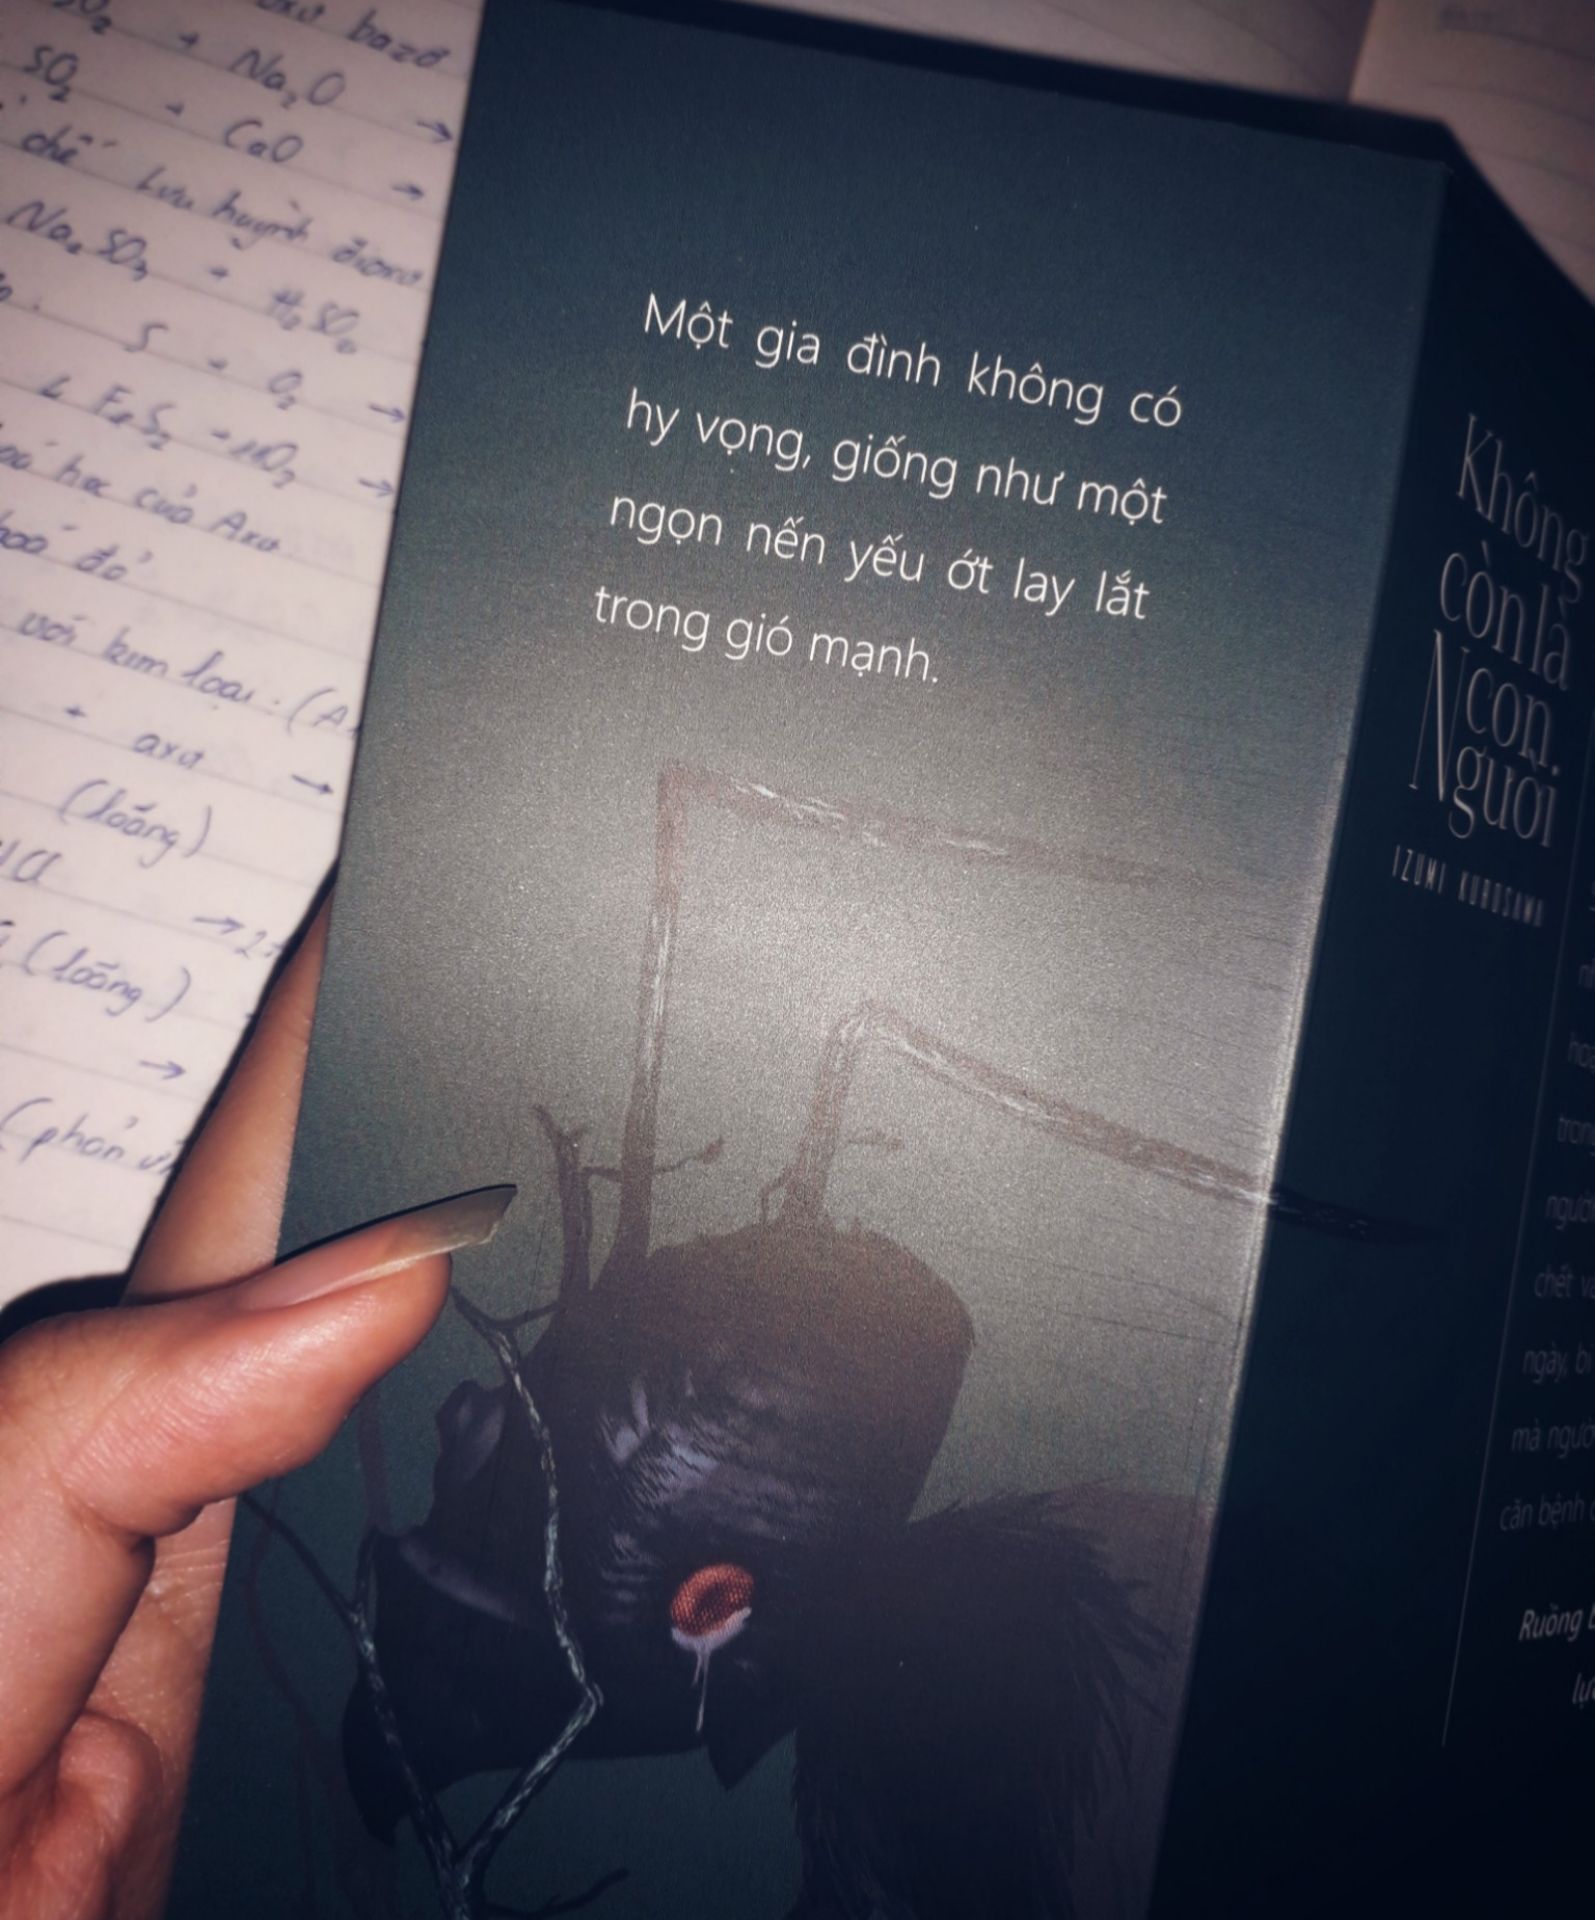 bazơ
SO₂ + Na₂O →
SO₂ + CaO →
chế lưu huỳnh đioxit
Na₂SO₃ + H₂SO₄
S + O₂ →
4 FeS₂ + 11O₂ →
học của Axit
hoá đỏ
với kim loại. (A
+ axit →
(loãng)
→ 2
(loãng)
→
(phản ứ
Một gia đình không có
hy vọng, giống như một
ngọn nến yếu ớt lay lắt
trong gió mạnh.
Không
còn là
con
Người
IZUMI KUROSAWA
tron
ngườ
chết v
ngày, b
mà ngườ
căn bệnh
Ruồng